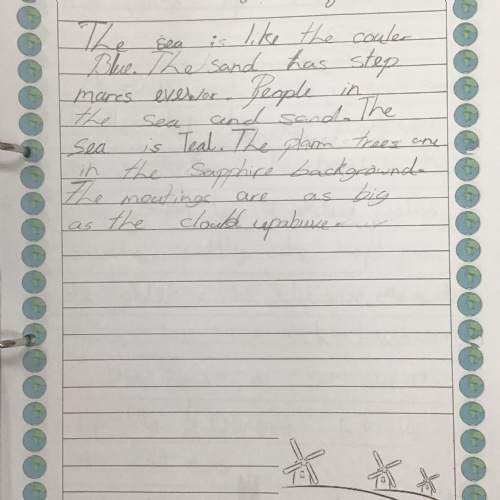 The sea is like the couler
Blue. The sand has step
marcs everwar. People in
the sea and sand. The
Sea is Teal. The plam trees are
in the Sapphire background.
The moutings are as big
as the clould upabuve.